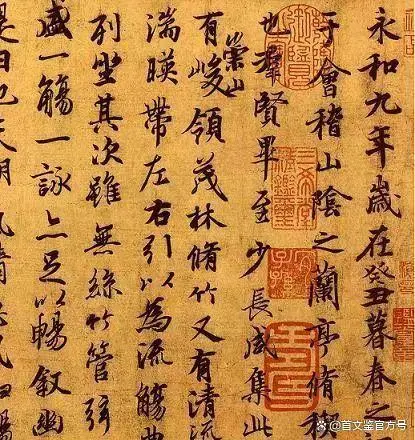 永和九年歲在癸丑暮春之
于會稽山陰之蘭亭脩稧
也羣賢畢至少長咸集此
有崇山峻領茂林脩竹又有清流
湍暎帶左右引以為流觴曲
列坐其次雖無絲竹管弦
盛一觴一詠亦足以暢敘幽
是日也天朗氣清
三希堂精鑑璽
宜子孫
@首文鉴官方号